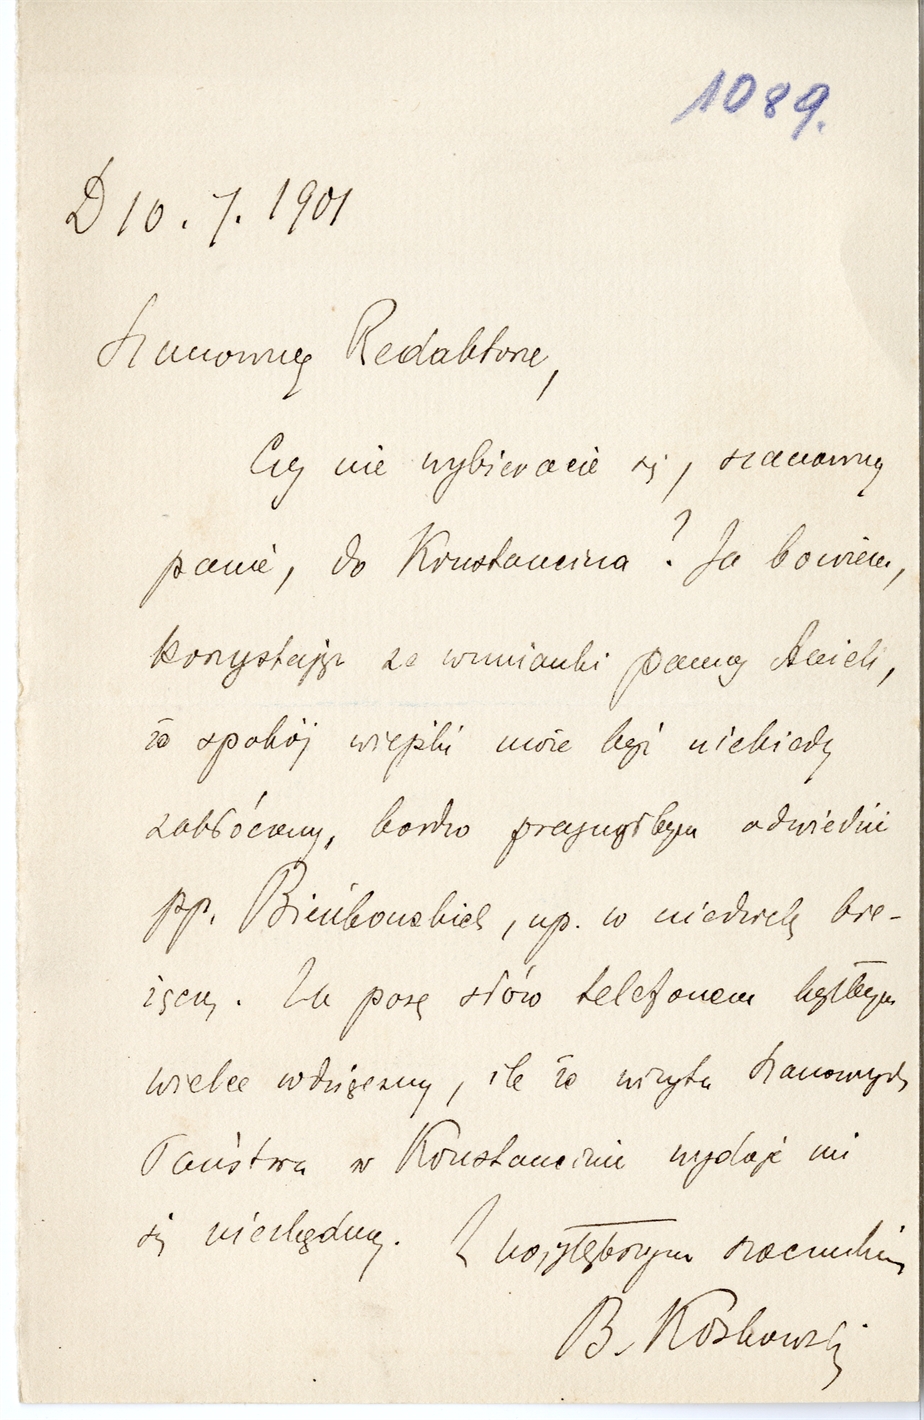 1089.
D 10. 7. 1901
Szanowny Redaktorze,
Czy nie wybieracie się, szanowny
panie, do Konstancina? Ja bowiem,
korzystając ze wzmianki panny Anieli,
że spokój wiejski może być niekiedy
zakłócony, bardzo pragnąłbym odwiedzić
pp. Bieńkowskich, np. w niedzielę bie-
żącą. Za parę słów telefonem byłbym
wielce wdzięczny, ile że wizyta Szanownych
Państwa w Konstancinie wydaje mi
się niezbędną. Z najgłębszym szacunkiem
B. Koskowski